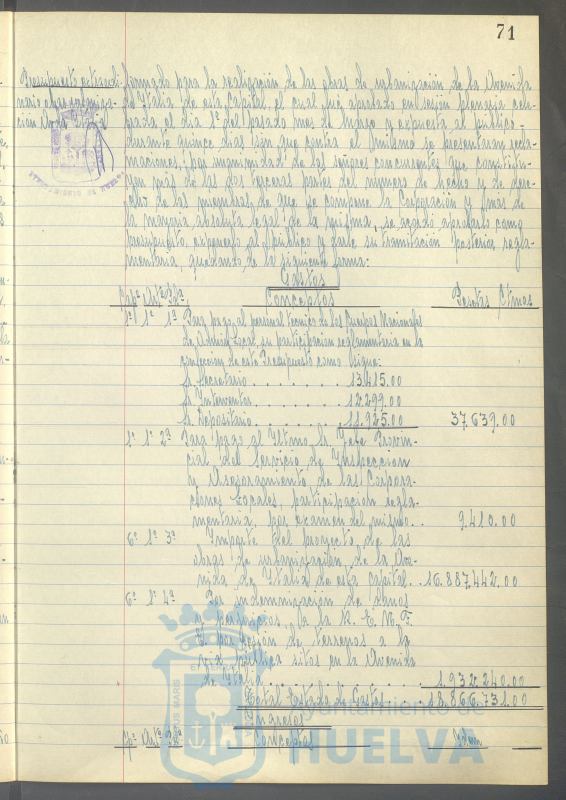 71
Presupuesto extraordi- formado para la realización de las obras de urbanización de la Avenida
nario obras urbaniza- de Italia de esta Capital el cual fué aprobado en sesión plenaria cele-
ción Avda. Italia brada el día 1º del pasado mes de Marzo y expuesto al público
durante quince días sin que contra el mismo se presentaran recla-
maciones, por unanimidad de los señores concurrentes que constitu-
yen más de las dos terceras partes del número de hecho y de dere-
cho de los miembros de que se compone la Corporación y pues de
la mayoría absoluta legal de la misma, se acordó aprobarlo como
presupuesto expuesto al público y darle su tramitación posterior regla-
mentaria, quedando de la siguiente forma:
Gastos
Capº Artº Pda. Conceptos Pesetas Ctmos
1º 1º 1ª Para pago al personal técnico de los Cuerpos Nacionales
de Admón Local su participación reglamentaria en la
confección de este Presupuesto como sigue:
Sr. Secretario . . . . . . . . 13.415.00
Sr. Interventor . . . . . . . . 12.299.00
Sr. Depositario . . . . . . . . 11.925.00 37.639.00
1º 1º 2ª Para pago al Iltmo. Sr. Jefe Provin-
cial del Servicio de Inspección
y Asesoramiento de las Corpora-
ciones Locales, participación regla-
mentaria, por examen del mismo . . 9.410.00
6º 1º 3ª Importe del proyecto de las
obras de urbanización de la Ave-
nida de Italia de esta Capital . . 16.887.442.00
6º 1º 4ª Por indemnización de daños
y perjuicios a la R.E.N.F.
E. por cesión de terrenos a la
vía pública sitos en la Avenida
de Italia . . . . . . . . . . . . 1.932.240.00
Total Estado de Gastos . . 18.866.731.00
Ingresos
Capº Artº Pda. Conceptos Idem
Ayuntamiento de
HUELVA